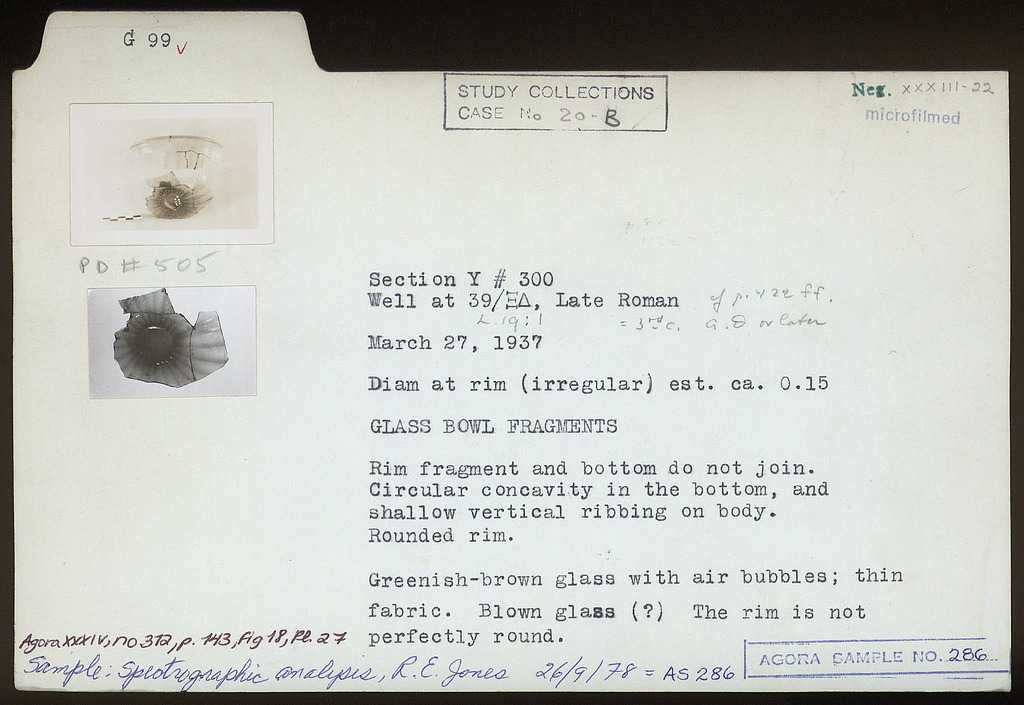 G 99 v
STUDY COLLECTIONS
CASE No 20-B
Neg. XXXIII-22
microfilmed
PD # 505
Section Y # 300
Well at 39/ΞΔ, Late Roman cf p. 422 ff.
L.19:1 = 3rd c. A.D or later
March 27, 1937
Diam at rim (irregular) est. ca. 0.15
GLASS BOWL FRAGMENTS
Rim fragment and bottom do not join.
Circular concavity in the bottom, and
shallow vertical ribbing on body.
Rounded rim.
Greenish-brown glass with air bubbles; thin
fabric. Blown glass (?) The rim is not
perfectly round.
Agora XXXIV, no 312, p. 143, Fig 18, Pl. 27
Sample: Spectrographic analysis, R. E. Jones 26/9/78 = AS 286
AGORA SAMPLE NO. 286